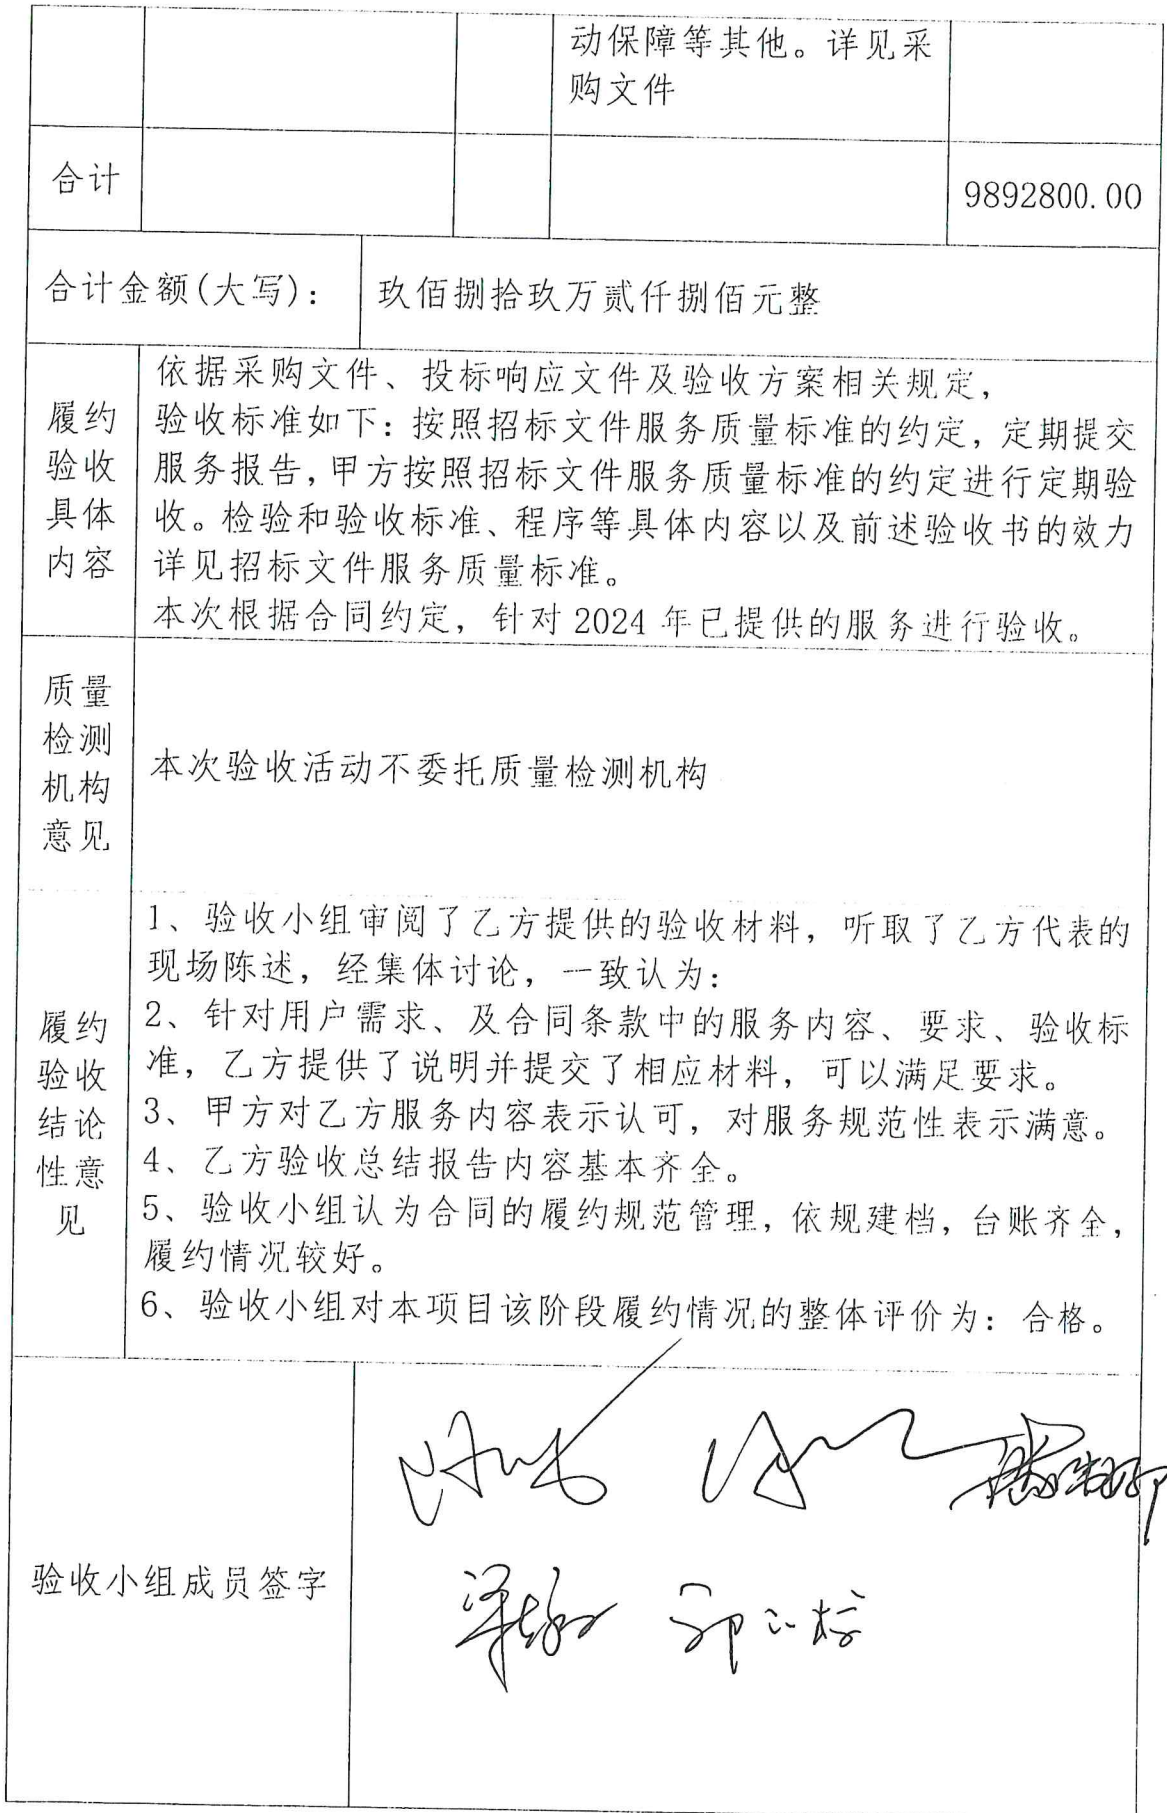 动保障等其他。详见采
购文件
合计
9892800.00
合计金额(大写):
玖佰捌拾玖万贰仟捌佰元整
履约
验收
具体
内容
依据采购文件、投标响应文件及验收方案相关规定,
验收标准如下:按照招标文件服务质量标准的约定,定期提交
服务报告,甲方按照招标文件服务质量标准的约定进行定期验
收。检验和验收标准、程序等具体内容以及前述验收书的效力
详见招标文件服务质量标准。
本次根据合同约定,针对 2024 年已提供的服务进行验收。
质量
检测
机构
意见
本次验收活动不委托质量检测机构
履约
验收
结论
性意
见
1、验收小组审阅了乙方提供的验收材料,听取了乙方代表的
现场陈述,经集体讨论,一致认为:
2、针对用户需求、及合同条款中的服务内容、要求、验收标
准,乙方提供了说明并提交了相应材料,可以满足要求。
3、甲方对乙方服务内容表示认可,对服务规范性表示满意。
4、乙方验收总结报告内容基本齐全。
5、验收小组认为合同的履约规范管理,依规建档,台账齐全,
履约情况较好。
6、验收小组对本项目该阶段履约情况的整体评价为:合格。
验收小组成员签字